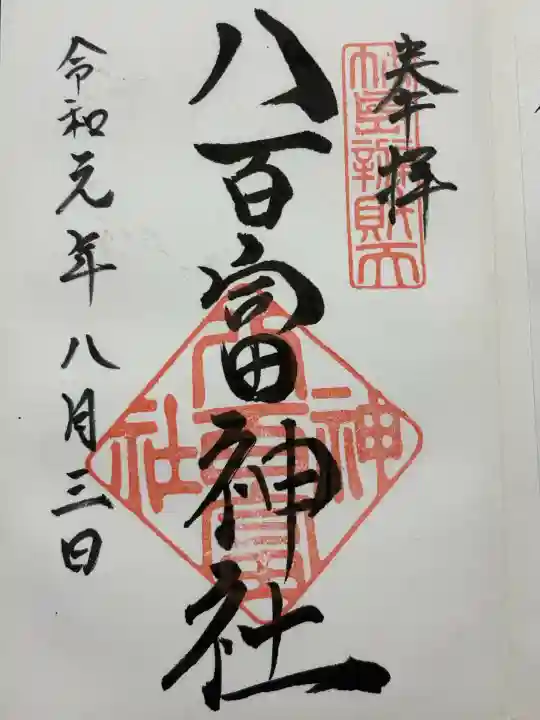 奉拝
八百富神社
令和元年八月三日
八百富
神社